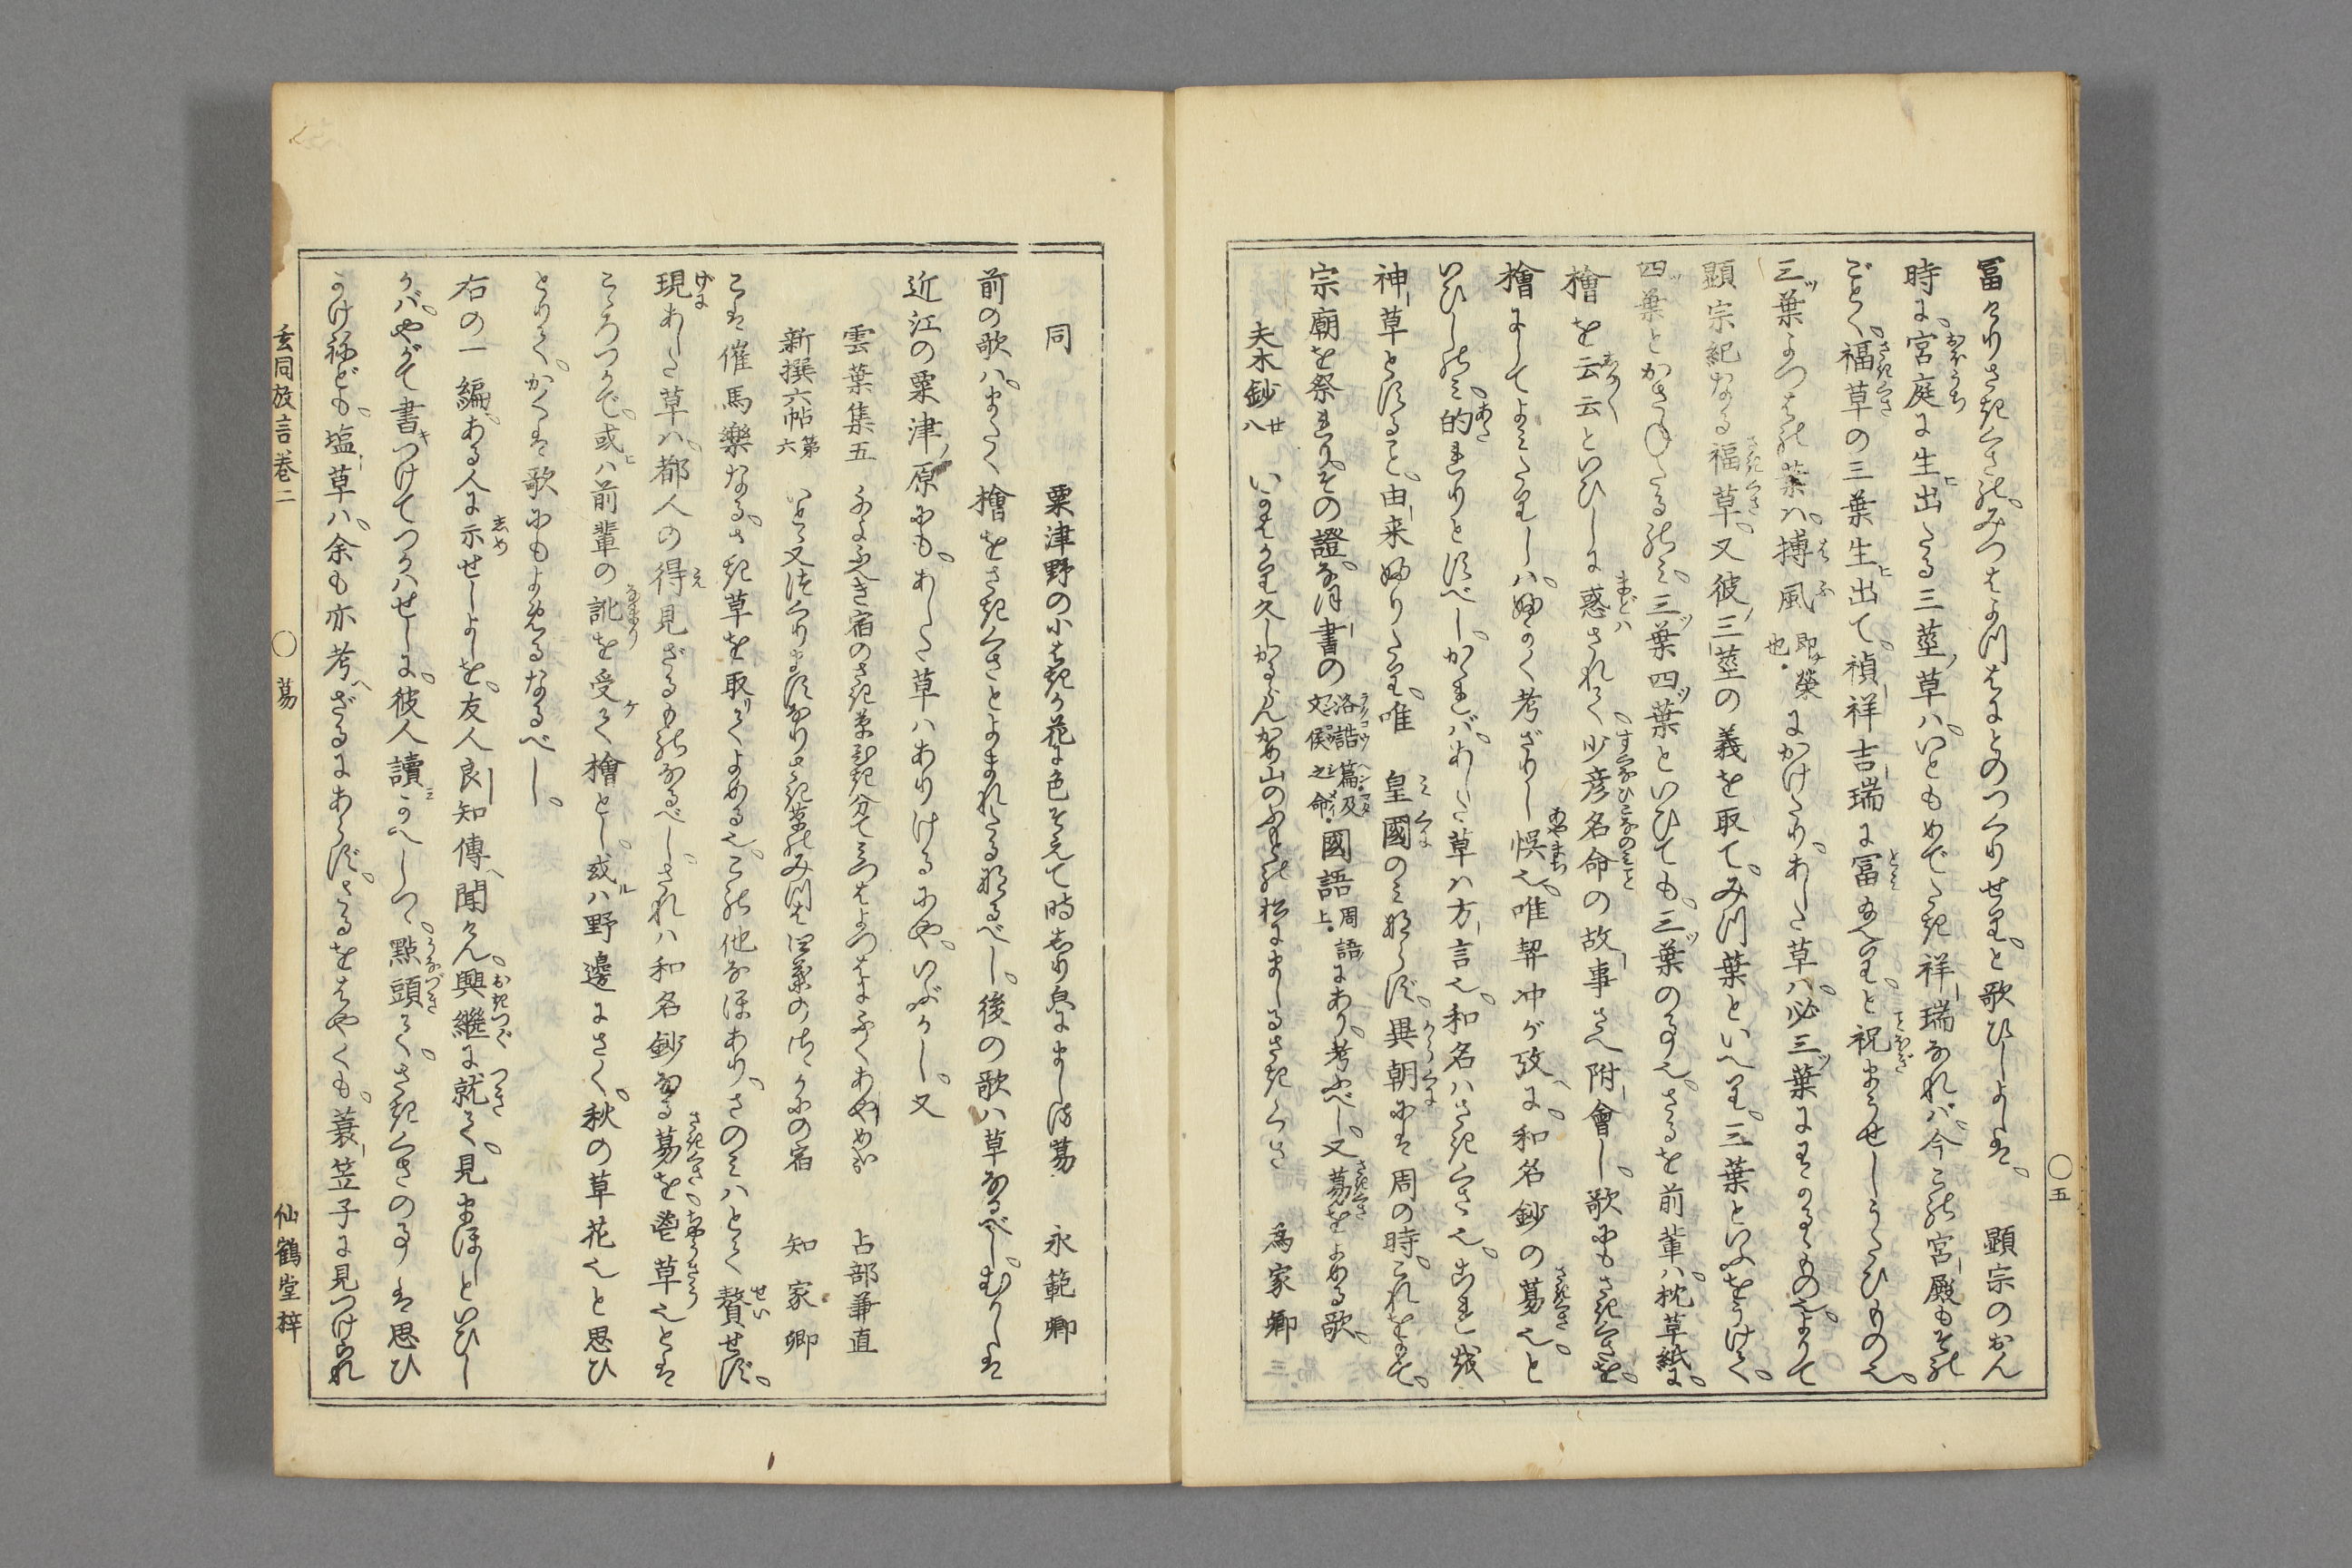 冨けりさきくさの。みつばよつばにとのつくりせり。と歌ひしよしは。　顕宗のおん
時に。宮庭に生出たる三莖草ハ。いともめでたき祥瑞なれバ。今この宮殿もその
ごとく。福草の三葉生出て。禎祥吉瑞に冨ると祝まうせしうたひものなり。
三葉よつばの葉ハ。搏風即榮也。にかけたり。あした草ハ。必三葉にわかるゝものなり。よりて
顕宗紀なる福草。又彼三莖の義を取て。みつ葉といへり。三葉といふをうけて。
四葉とかさねたるのミ。三葉四葉といひても。三葉の事なり。さるを前輩ハ。枕草紙に。
檜を云云といひしに惑されて。少彦名命の故事さへ附會し。歌にもさきくさを。
檜にしてよみたりしハ。𛀁考ざりし悞なり。唯契冲が攷に。和名鈔の葛なりと
いひしのミ。的れりとすべし。かゝれバ。あした草ハ方言なり。和名ハさきくさなり。これ
神草とすること。由来ありたり。唯　皇國のミならず。異朝にも周の時。これをもて。
宗廟を祭れり。その證。なほ書の洛誥篇及文侯之命。國語周語上。にあり。考ふべし。又葛をよめる歌。
夫木鈔廿八　いのちかり久しかるらんかめ山のふもとの松にまじるさきくさ　爲家卿
〇五
同　粟津野の小さきが花に色そえて時しり㒵にまじる葛　永範卿
前の歌ハ。まさく檜をさきくさとよまれたるなるべし。後の歌ハ草なるべし。むかしは
近江の粟津原にも。あした草ハありけるにや。いぶかし。又
雲葉集五　ふよふべき宿のさき草引分てみつばよつばにふくあやめか　占部兼直
新撰六帖第六　いとゝ又つくります なりさき草のみつば四葉の 宿　知家卿
こは催馬樂なる。さき草を取りてよめるなり。この他なほあり。さのミハとて贅せず。
現あした草ハ。都人の得見ざるものなるべし。されハ和名鈔なる葛を。蚕草なりとは
こゝろつかで。或ハ前輩の訛を受て檜とし。或ハ野邊にさく。秋の草花なりと思ひ
とりて。かくは歌にもよめるなるべし。
右の一編。ある人に示せしよしを。友人良知傳へ聞けん。興繼に就て。見まほしといひし
かバ。やがて書つけてつかハせしに。彼人讀かへしつ。點頭て。さきくさの事は思ひ
かけねども。塩草ハ。余も亦考へざるにあらず。さるをはやくも。蓑笠子に見つけられ
玄同放言巻二　〇葛　仙鶴堂梓